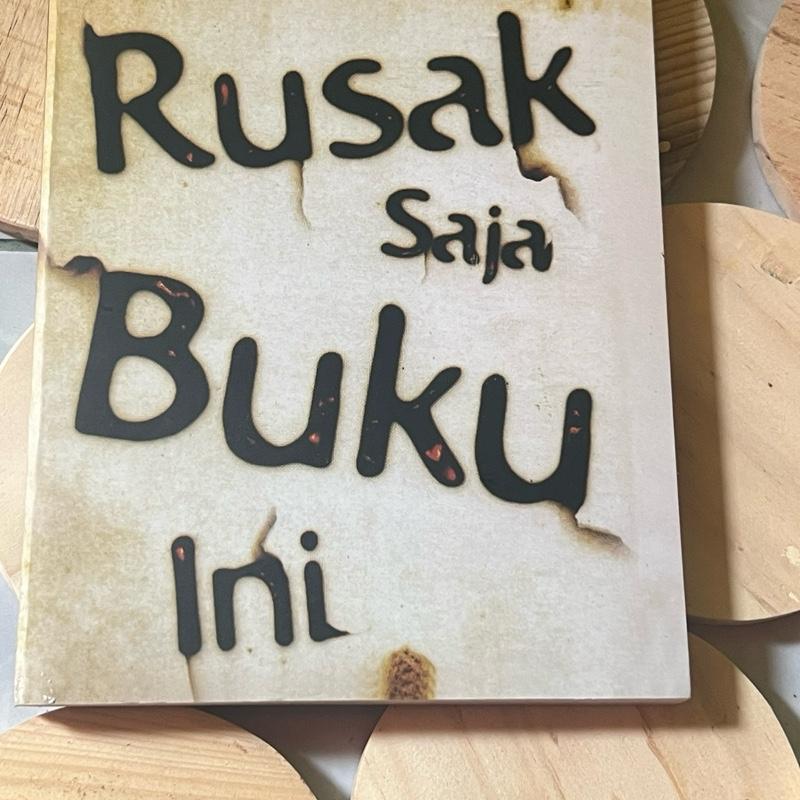 Rusak
Saja
Buku
Ini